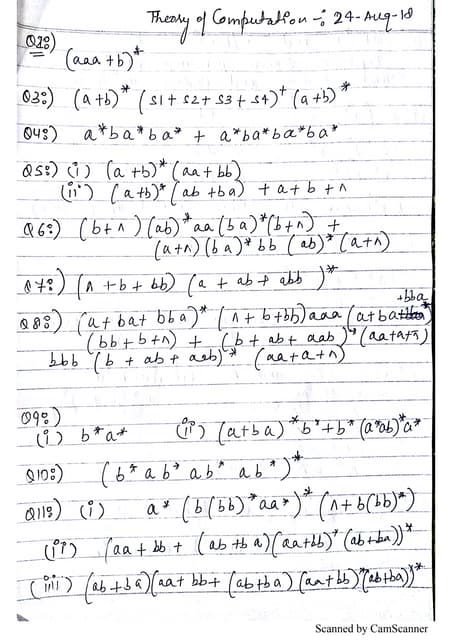 Theory of Computation :- 24-Aug-18
Q2:)
(aaa + b)*
Q3:) (a+b)* (s1 + s2 + s3 + s4)+ (a+b)*
Q4:) a*ba*ba* + a*ba*ba*ba*
Q5:) (i) (a+b)* (aa + bb)
(ii) (a+b)* (ab + ba) + a + b + ʌ
Q6:) (b+ʌ) (ab)* aa (ba)* (b+ʌ) +
(a+ʌ) (ba)* bb (ab)* (a+ʌ)
Q7:) (ʌ + b + bb) (a + ab + abb)*
+bba
Q8:) (a + ba + bba)* (ʌ + b + bb) aaa (a+ba )*
(bb + b + ʌ) + (b + ab + aab)* (aa+a+ʌ)
bbb (b + ab + aab)* (aa + a + ʌ)
Q9:)
(i) b*a* (ii) (a+ba)* b* + b* (a*ab)* a*
Q10:) (b* ab* ab* ab*)*
Q11:) (i) a* (b(bb)*aa*)* (ʌ + b(bb)*)
(ii) (aa + bb + (ab + ba)(aa+bb)* (ab+ba))*
(iii) (ab+ba)(aa+bb+ (ab+ba) (aa+bb)* (ab+ba))*
Scanned by CamScanner